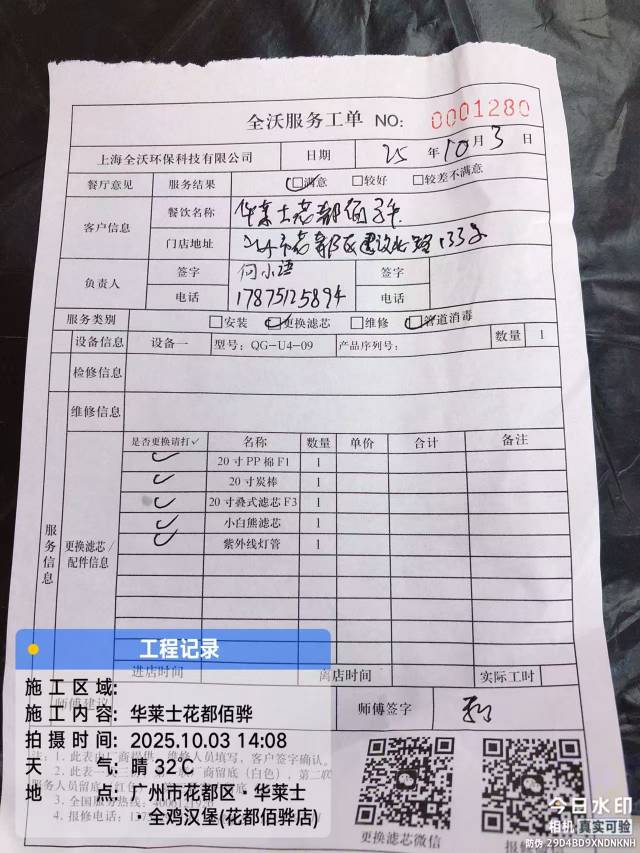 全沃服务工单 NO: 0001280
上海全沃环保科技有限公司 日期 25 年 10 月 3 日
餐厅意见 服务结果 □满意 □较好 □较差不满意
客户信息 餐饮名称 华莱士花都佰
门店地址 市花都区建设北路133
负责人 签字 何小语 签字
电话 17875125894 电话
服务类别 □安装 □更换滤芯 □维修 □管道消毒
设备信息 设备一 型号: QG-U4-09 产品序列号: 数量 1
检修信息
维修信息
服务信息
更换滤芯/配件信息
是否更换请打✓ 名称 数量 单价 合计 备注
✓ 20寸PP棉F1 1
✓ 20寸炭棒 1
✓ 20寸叠式滤芯F3 1
✓ 小白熊滤芯 1
✓ 紫外线灯管 1
进店时间 离店时间 实际工时
师傅建议 师傅签字
更换滤芯微信
工程记录
施工区域:
施工内容: 华莱士花都佰骅
拍摄时间: 2025.10.03 14:08
天气: 晴 32℃
地点: 广州市花都区·华莱士
·全鸡汉堡(花都佰骅店)
今日水印
相机 真实可验
防伪 29D4BD9XNDNKNH